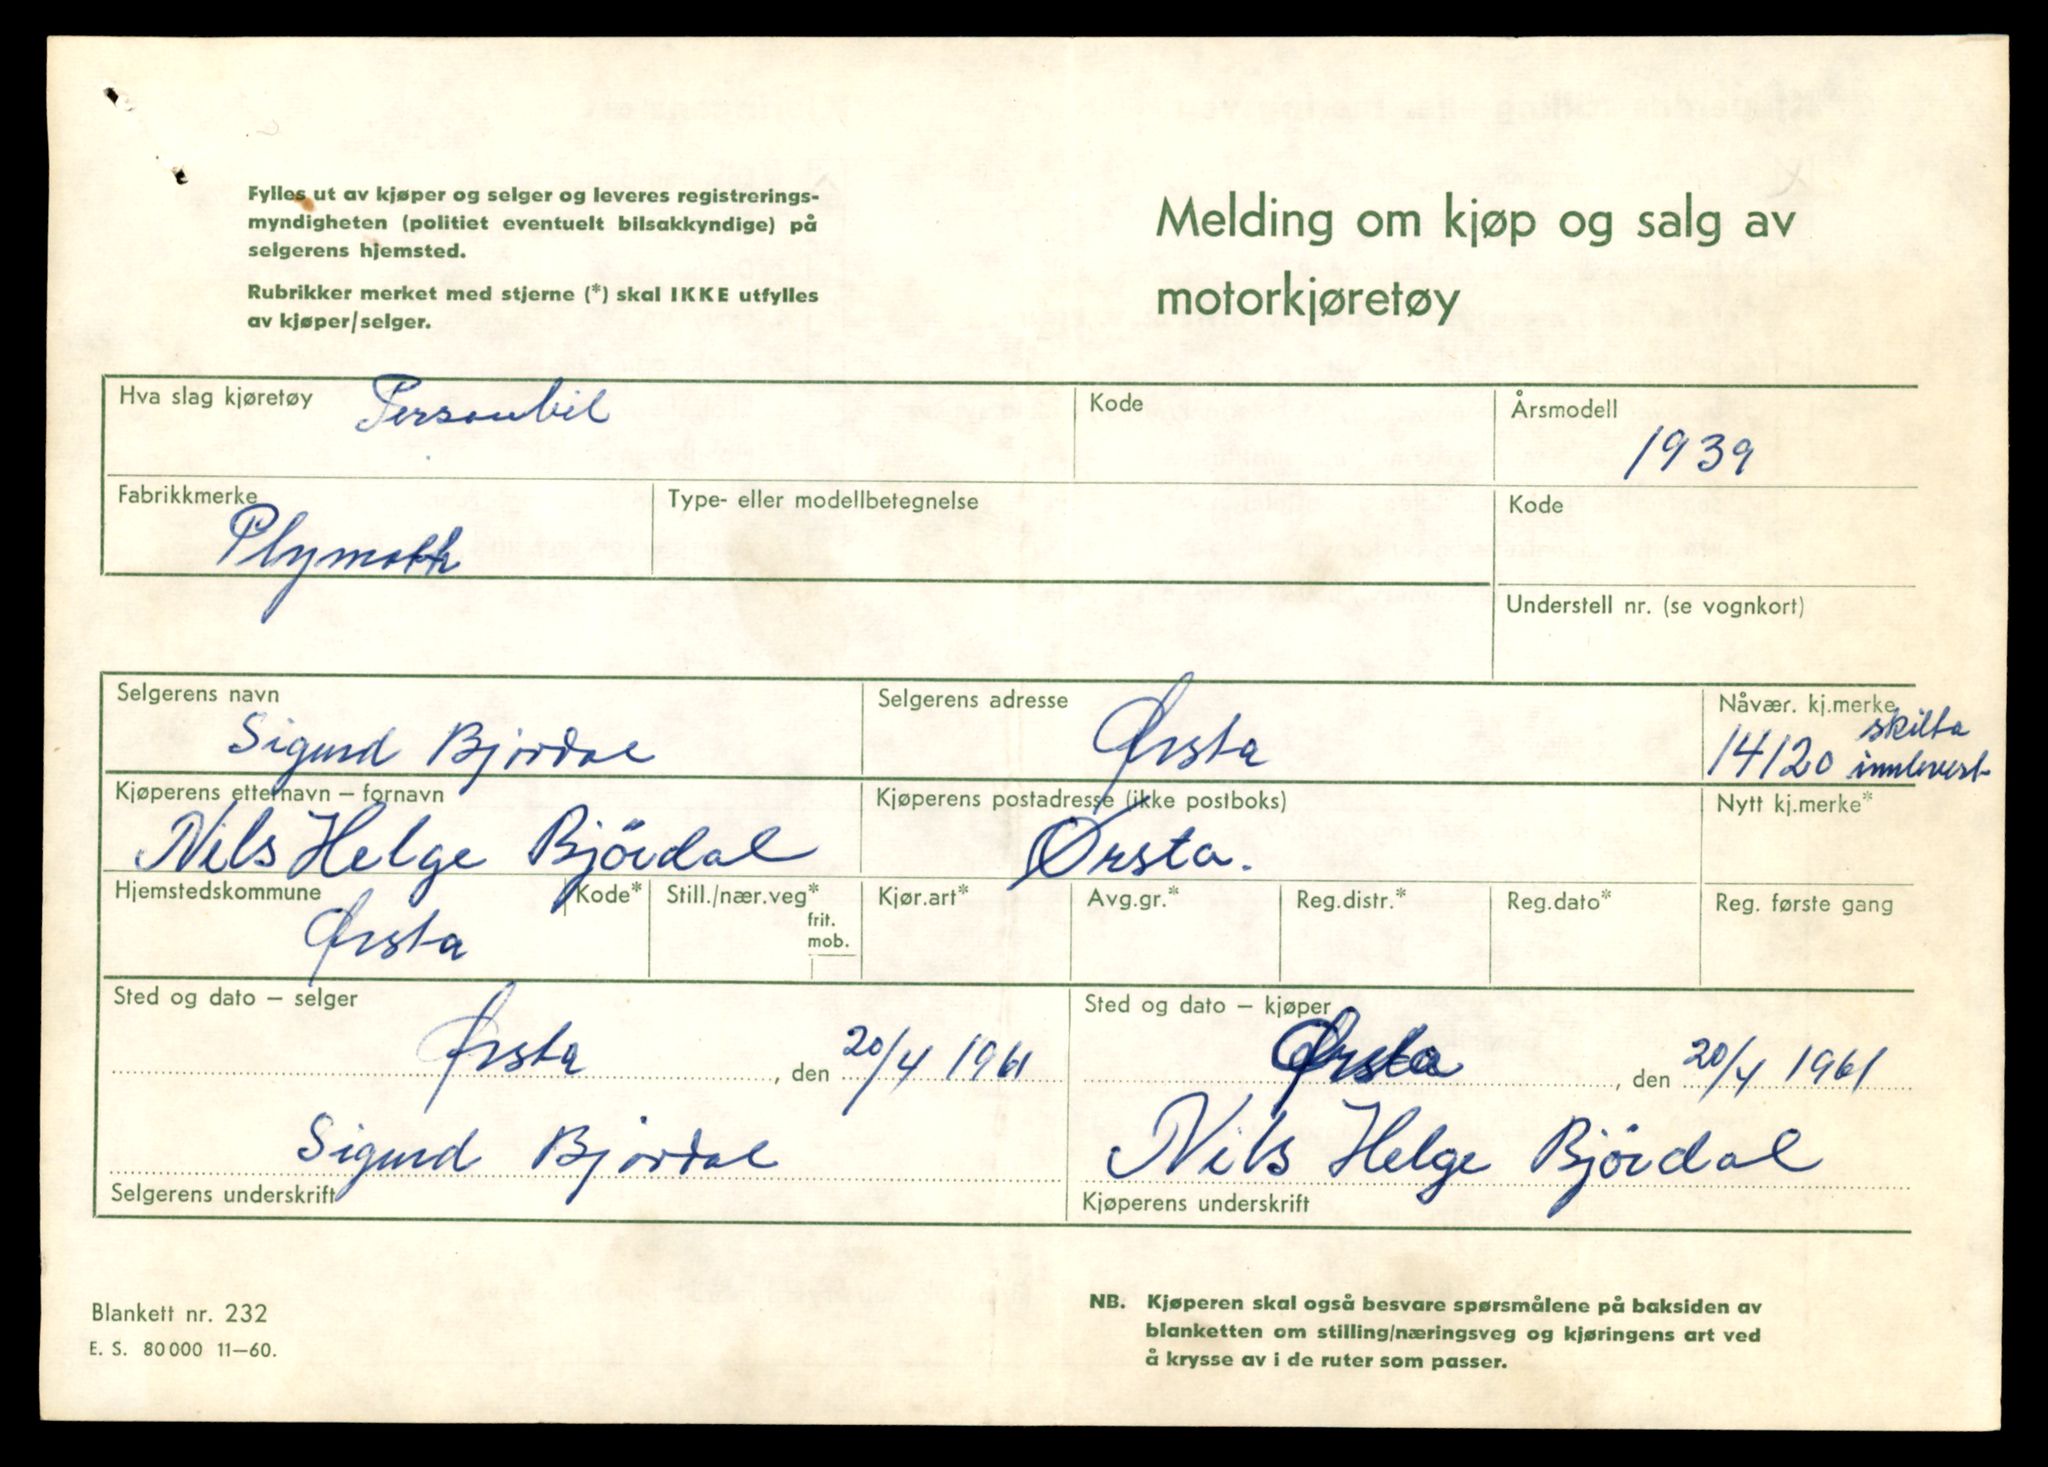 Fylles ut av kjøper og selger og leveres registrerings-
myndigheten (politiet eventuelt bilsakkyndige) på
selgerens hjemsted.
Rubrikker merket med stjerne (*) skal IKKE utfylles
av kjøper/selger.
Melding om kjøp og salg av
motorkjøretøy
Hva slag kjøretøy Personbil
Kode
Årsmodell
1939
Fabrikkmerke
Plymoth
Type- eller modellbetegnelse
Kode
Understell nr. (se vognkort)
Selgerens navn
Sigurd Bjørdal
Selgerens adresse
Ørsta
Nåvær. kj.merke
14120 skilta
innlevert
Kjøperens etternavn – fornavn
Nils Helge Björdal
Kjøperens postadresse (ikke postboks)
Ørsta.
Nytt kj.merke*
Hjemstedskommune
Ørsta
Kode*
Still./nær.veg*
frit.
mob.
Kjør.art*
Avg.gr.*
Reg.distr.*
Reg.dato*
Reg. første gang
Sted og dato – selger
Ørsta, den 20/4 1961
Sigurd Bjørdal
Selgerens underskrift
Sted og dato – kjøper
Ørsta, den 20/4 1961
Nils Helge Björdal
Kjøperens underskrift
Blankett nr. 232
E. S. 80000 11–60.
NB. Kjøperen skal også besvare spørsmålene på baksiden av
blanketten om stilling/næringsveg og kjøringens art ved
å krysse av i de ruter som passer.